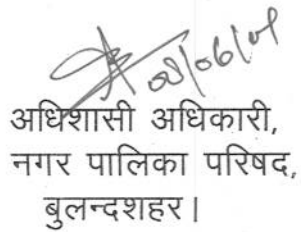 अधिशासी अधिकारी,
नगर पालिका परिषद,
बुलन्दशहर।